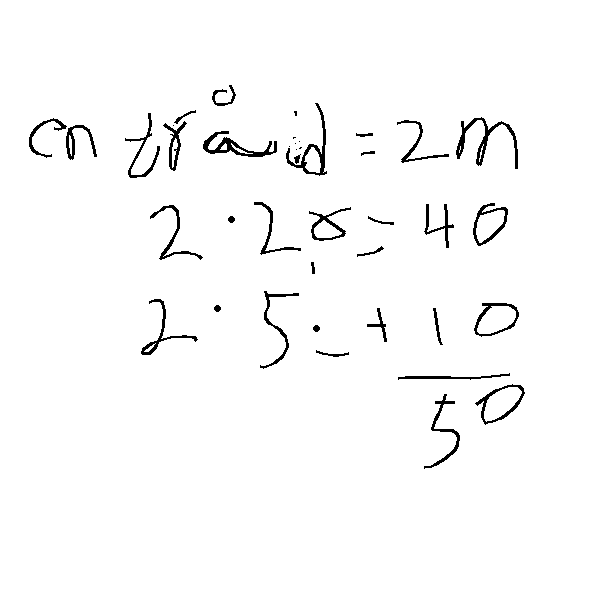 en tråd = 2m
2 · 20 = 40
2 · 5 = + 10
50